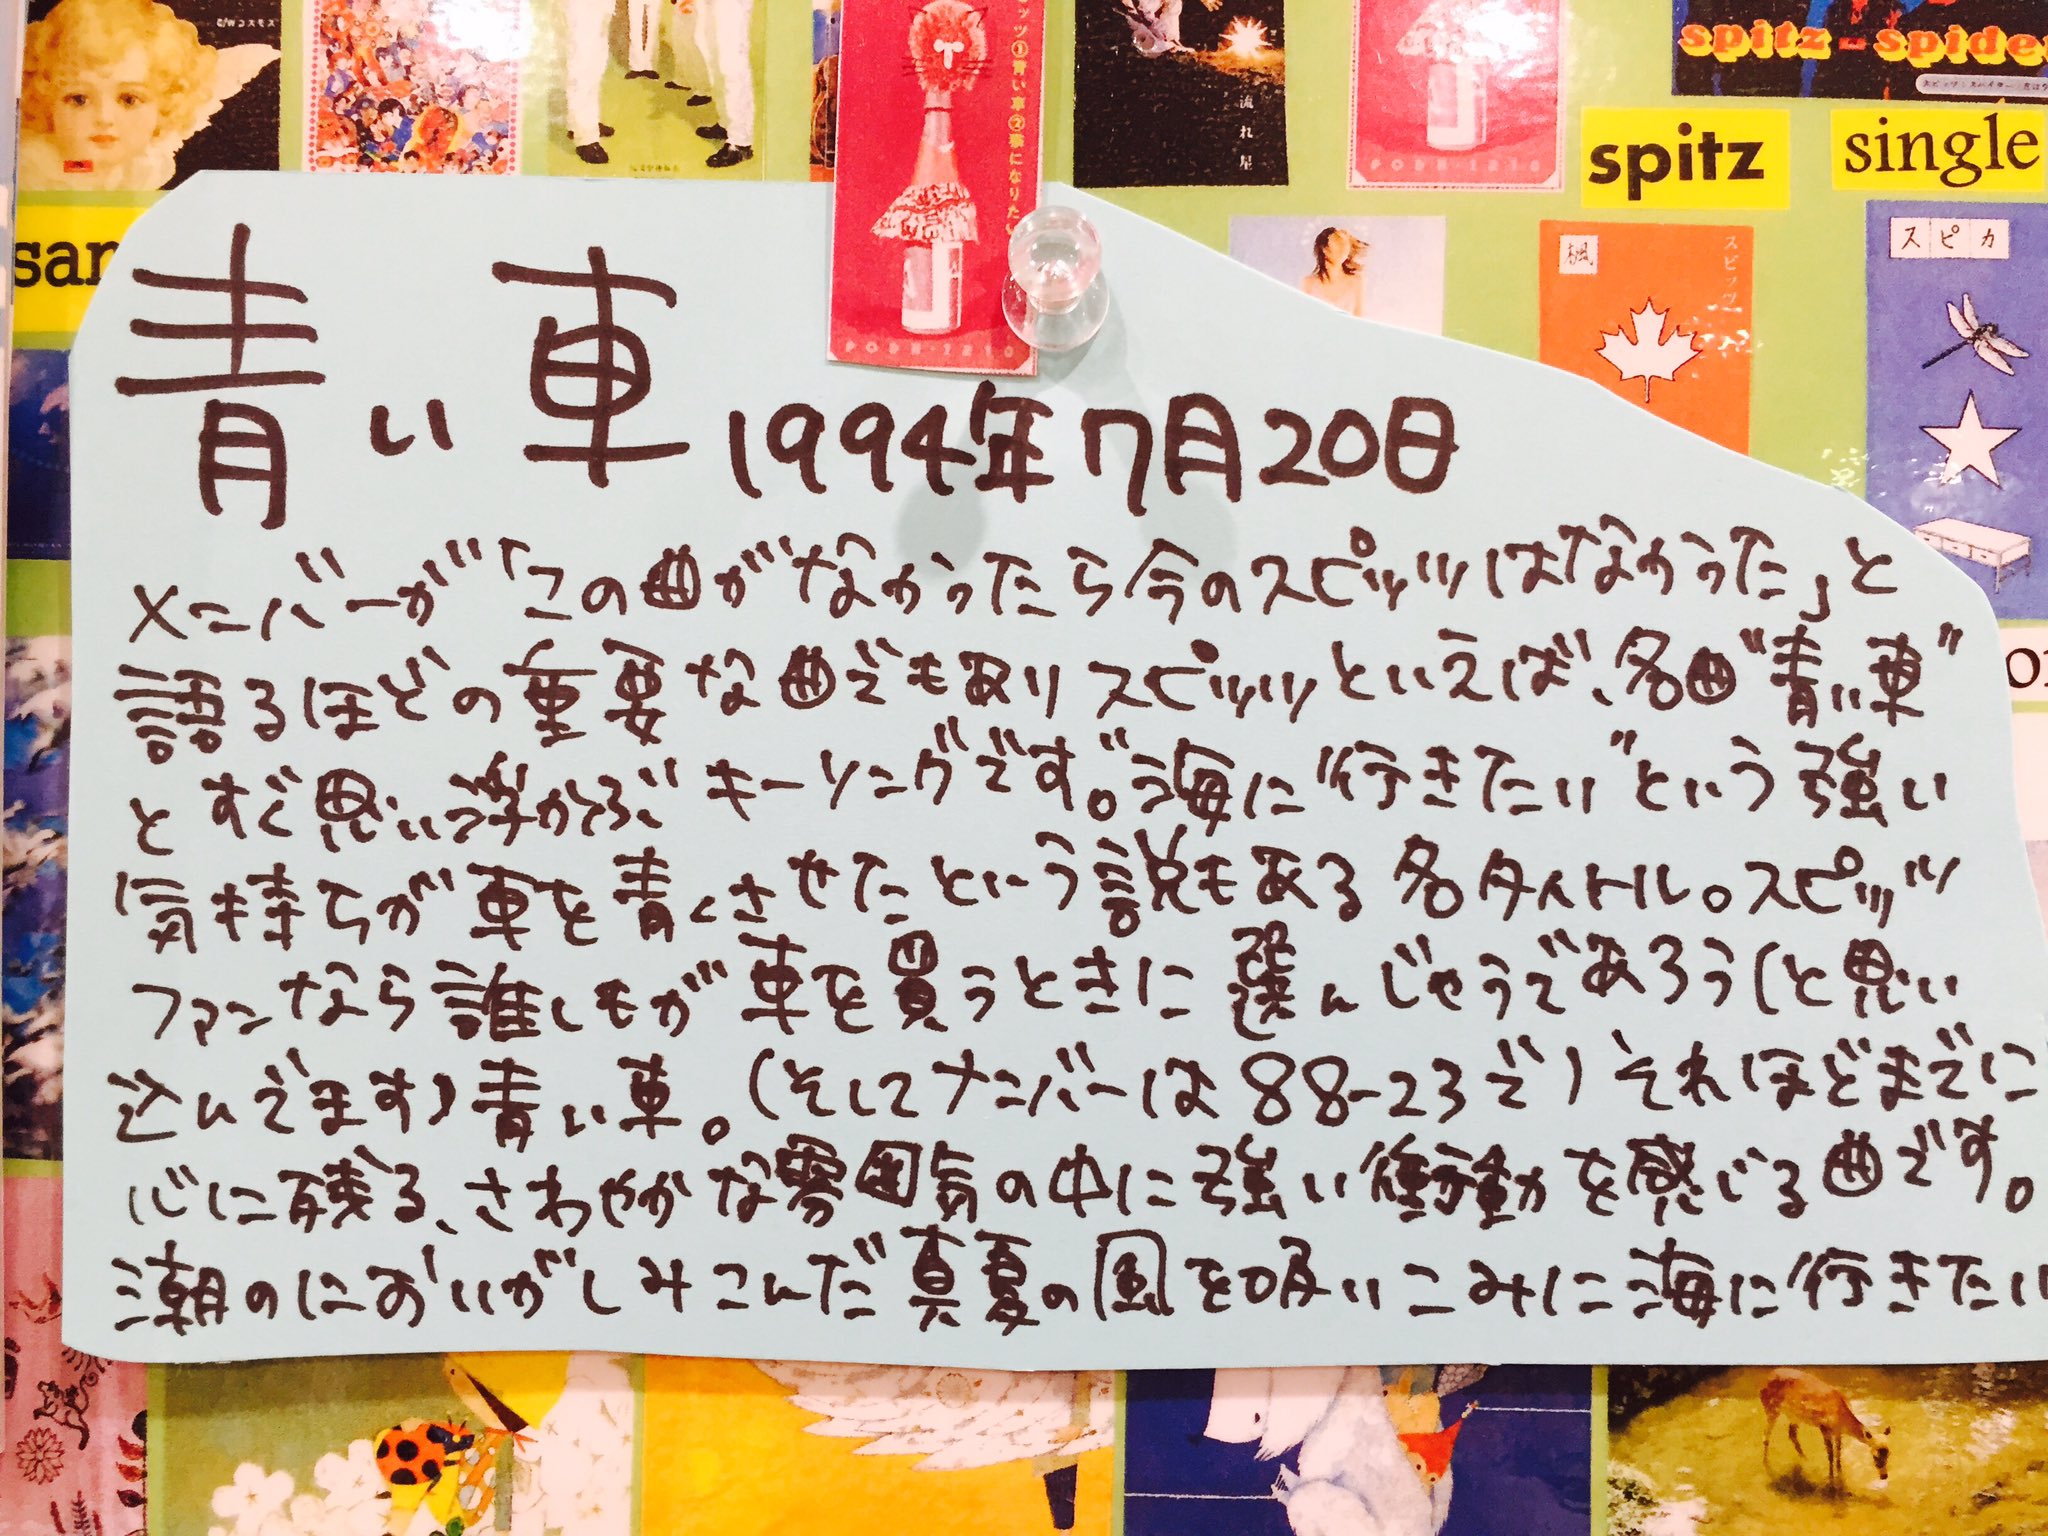 C/Wコスモス
流れ星
spitz-spide
ッツ①青い車②猫になりた
PODH-1210
PODH-1210
spitz
single
san
楓
スピッツ
スピカ
青い車 1994年7月20日
メンバーが「この曲がなかったら今のスピッツはなかった」と
語るほどの重要な曲でもありスピッツといえば、名曲"青い車"
とすぐ思い浮かぶキーソングです。"海に行きたい"という強い
気持ちが車を青くさせたという説もある名タイトル。スピッツ
ファンなら誰しもが車を買うときに選んじゃうであろう(と思い
込んでます)青い車。(そしてナンバーは88-23で)それほどまでに
心に残る、さわやかな雰囲気の中に強い衝動を感じる曲です。
潮のにおいがしみこんだ真夏の風を吸いこみに海に行きたい